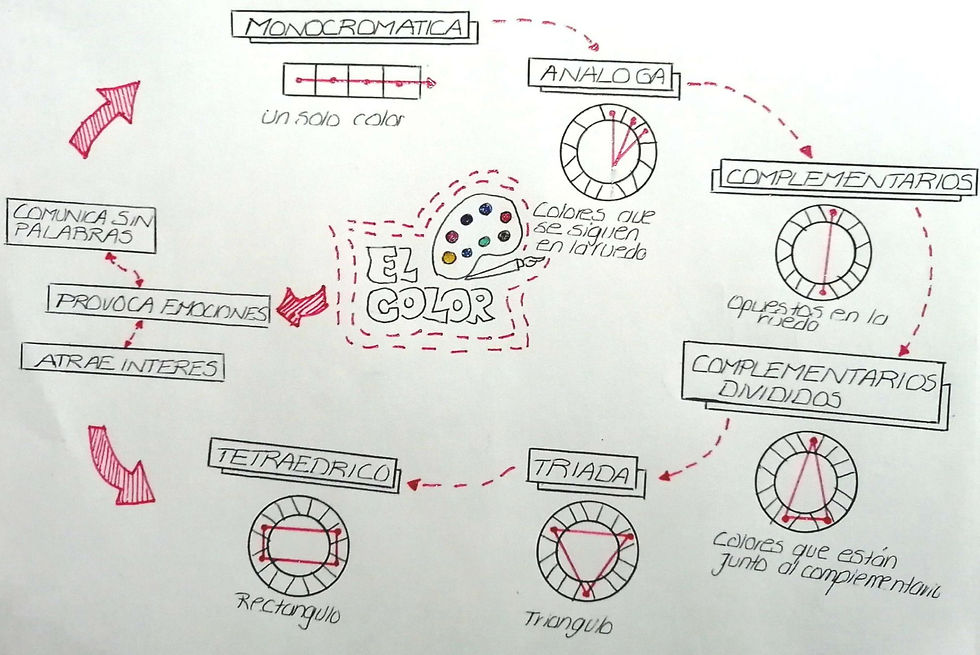 MONOCROMATICA
un solo color
ANALOGA
Colores que
se siguen
en la ruedo
COMPLEMENTARIOS
Opuestos en la
ruedo
COMPLEMENTARIOS
DIVIDIDOS
Colores que están
junto al complementario
TRIADA
Triangulo
TETRAEDRICO
Rectangulo
EL
COLOR
COMUNICA SIN
PALABRAS
PROVOCA EMOCIONES
ATRAE INTERES